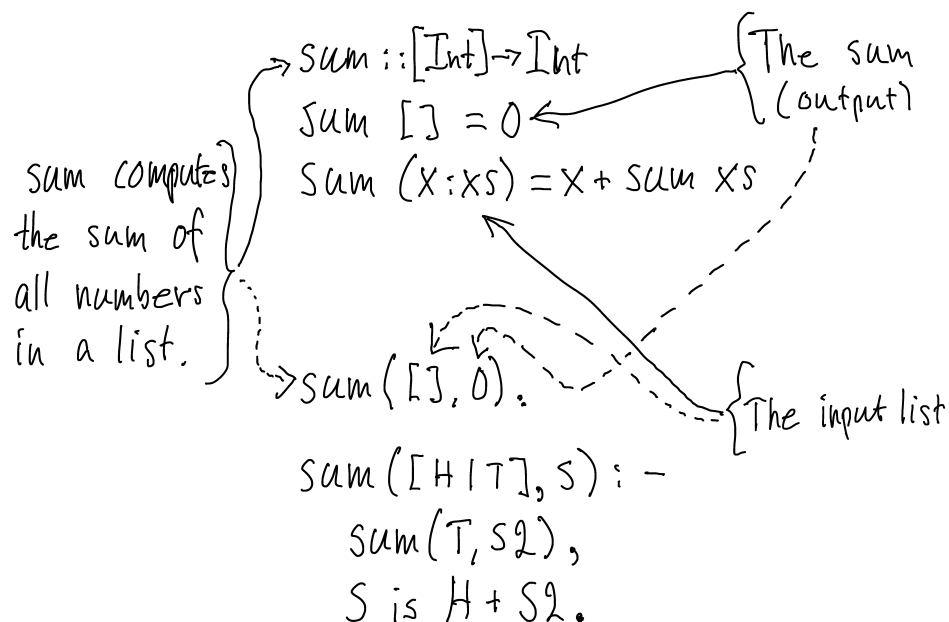 sum::[Int]→Int
sum [] = 0
sum (x:xs) = x + sum xs
The sum
(output)
sum computes
the sum of
all numbers
in a list.
sum([], 0).
The input list
sum([H|T], S) :-
sum(T, S2),
S is H + S2.